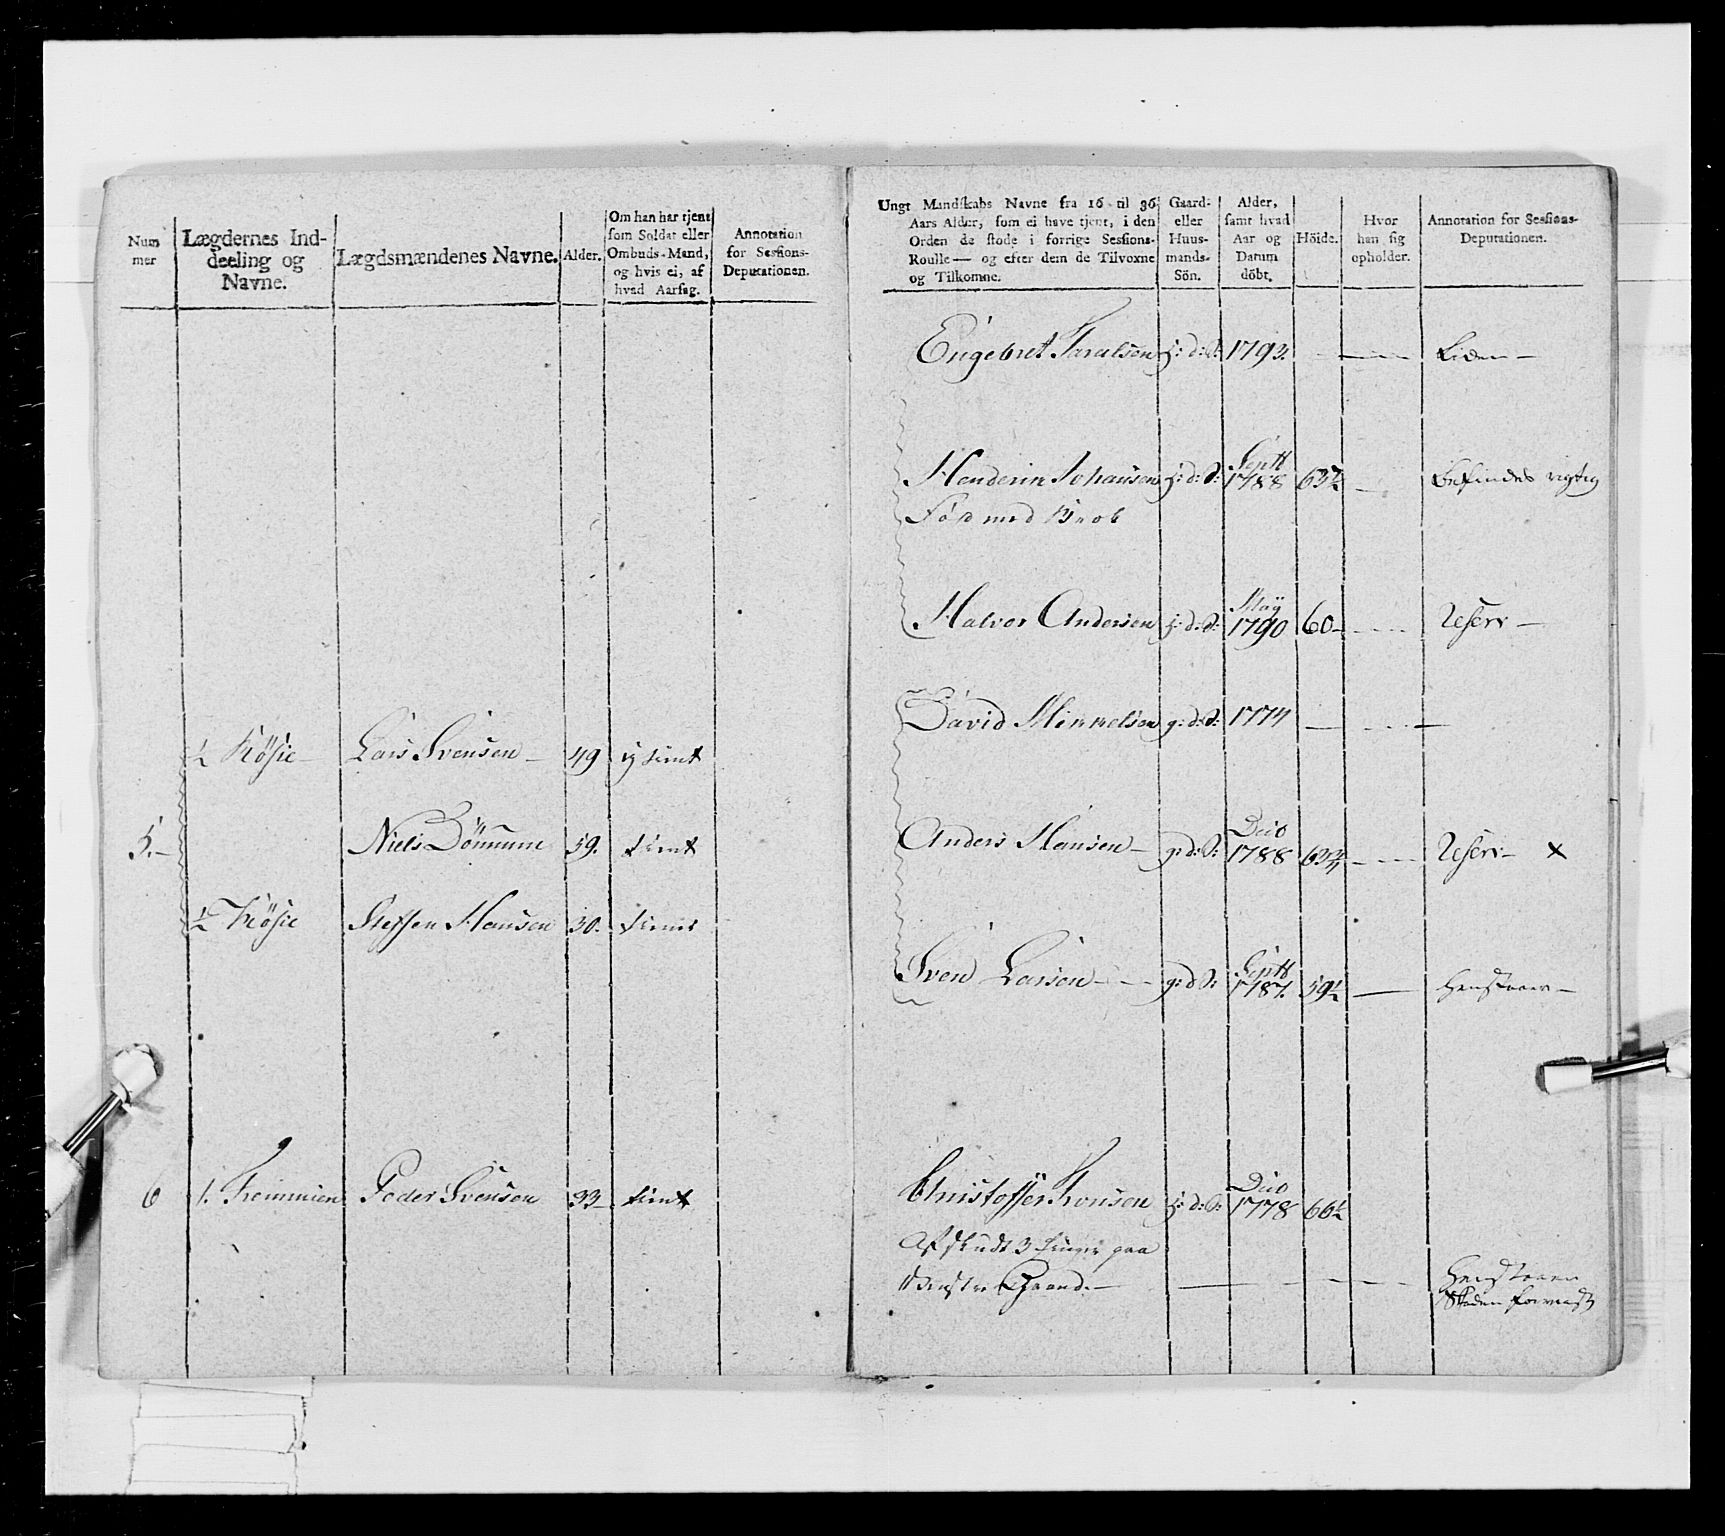 Num
mer
Lægdernes Ind-
deeling og
Navne.
Lægdsmændenes Navne.
Alder.
Om han har tjent
som Soldat eller
Ombuds-Mand,
og hvis ei, af
hvad Aarsag.
Annotation
for Sessions-
Deputationen.
1/2 Røsie Lars Svensen 49
5. Niels Dønnum 59. tient
1/2 Røsie Steffen Hansen 30.
6 1. Fremmien Peder Svensen 33 tient
Ungt Mandskabs Navne fra 16 til 36
Aars Alder, som ei have tjent, i den
Orden de stode i forrige Sessions-
Roulle — og efter dem de Tilvoxne
og Tilkomne.
Gaard-
eller
Huus-
mands-
Sön.
Alder,
samt hvad
Aar og
Datum
döbt.
Höide.
Hvor
han sig
opholder.
Annotation for Sessions-
Deputationen.
Engebret Taralsen 1793. Liden
Septb
Henderin Johansen 1788 63 1/2 Befindes rigtig
Fød med Brok
May
Halvor Andersen 1790 60 Reserv
David Mikkelsen 1774
Decb
Anders Hansen 1788 63 3/4 Reserv x
Septb
Sven Larsen 1787. 59 1/2 Henstaaer
Decb
Christoffer Tronsen 1778 66 1/2
Afskudt 3 finger paa
Venstre Haand. Henstaaer
Skaden